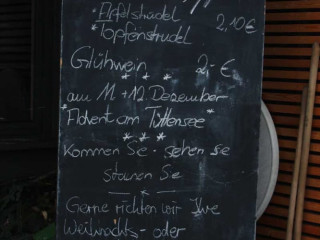 * Apfelstrudel 2,10 €
* Topfenstrudel
Glühwein 2,- €
* * *
am 11 + 12 Dezember
* Advent am Tüttensee *
* * *
Kommen Sie - sehen Sie
staunen Sie
*
Gerne richten wir Ihre
Weihnachts- oder